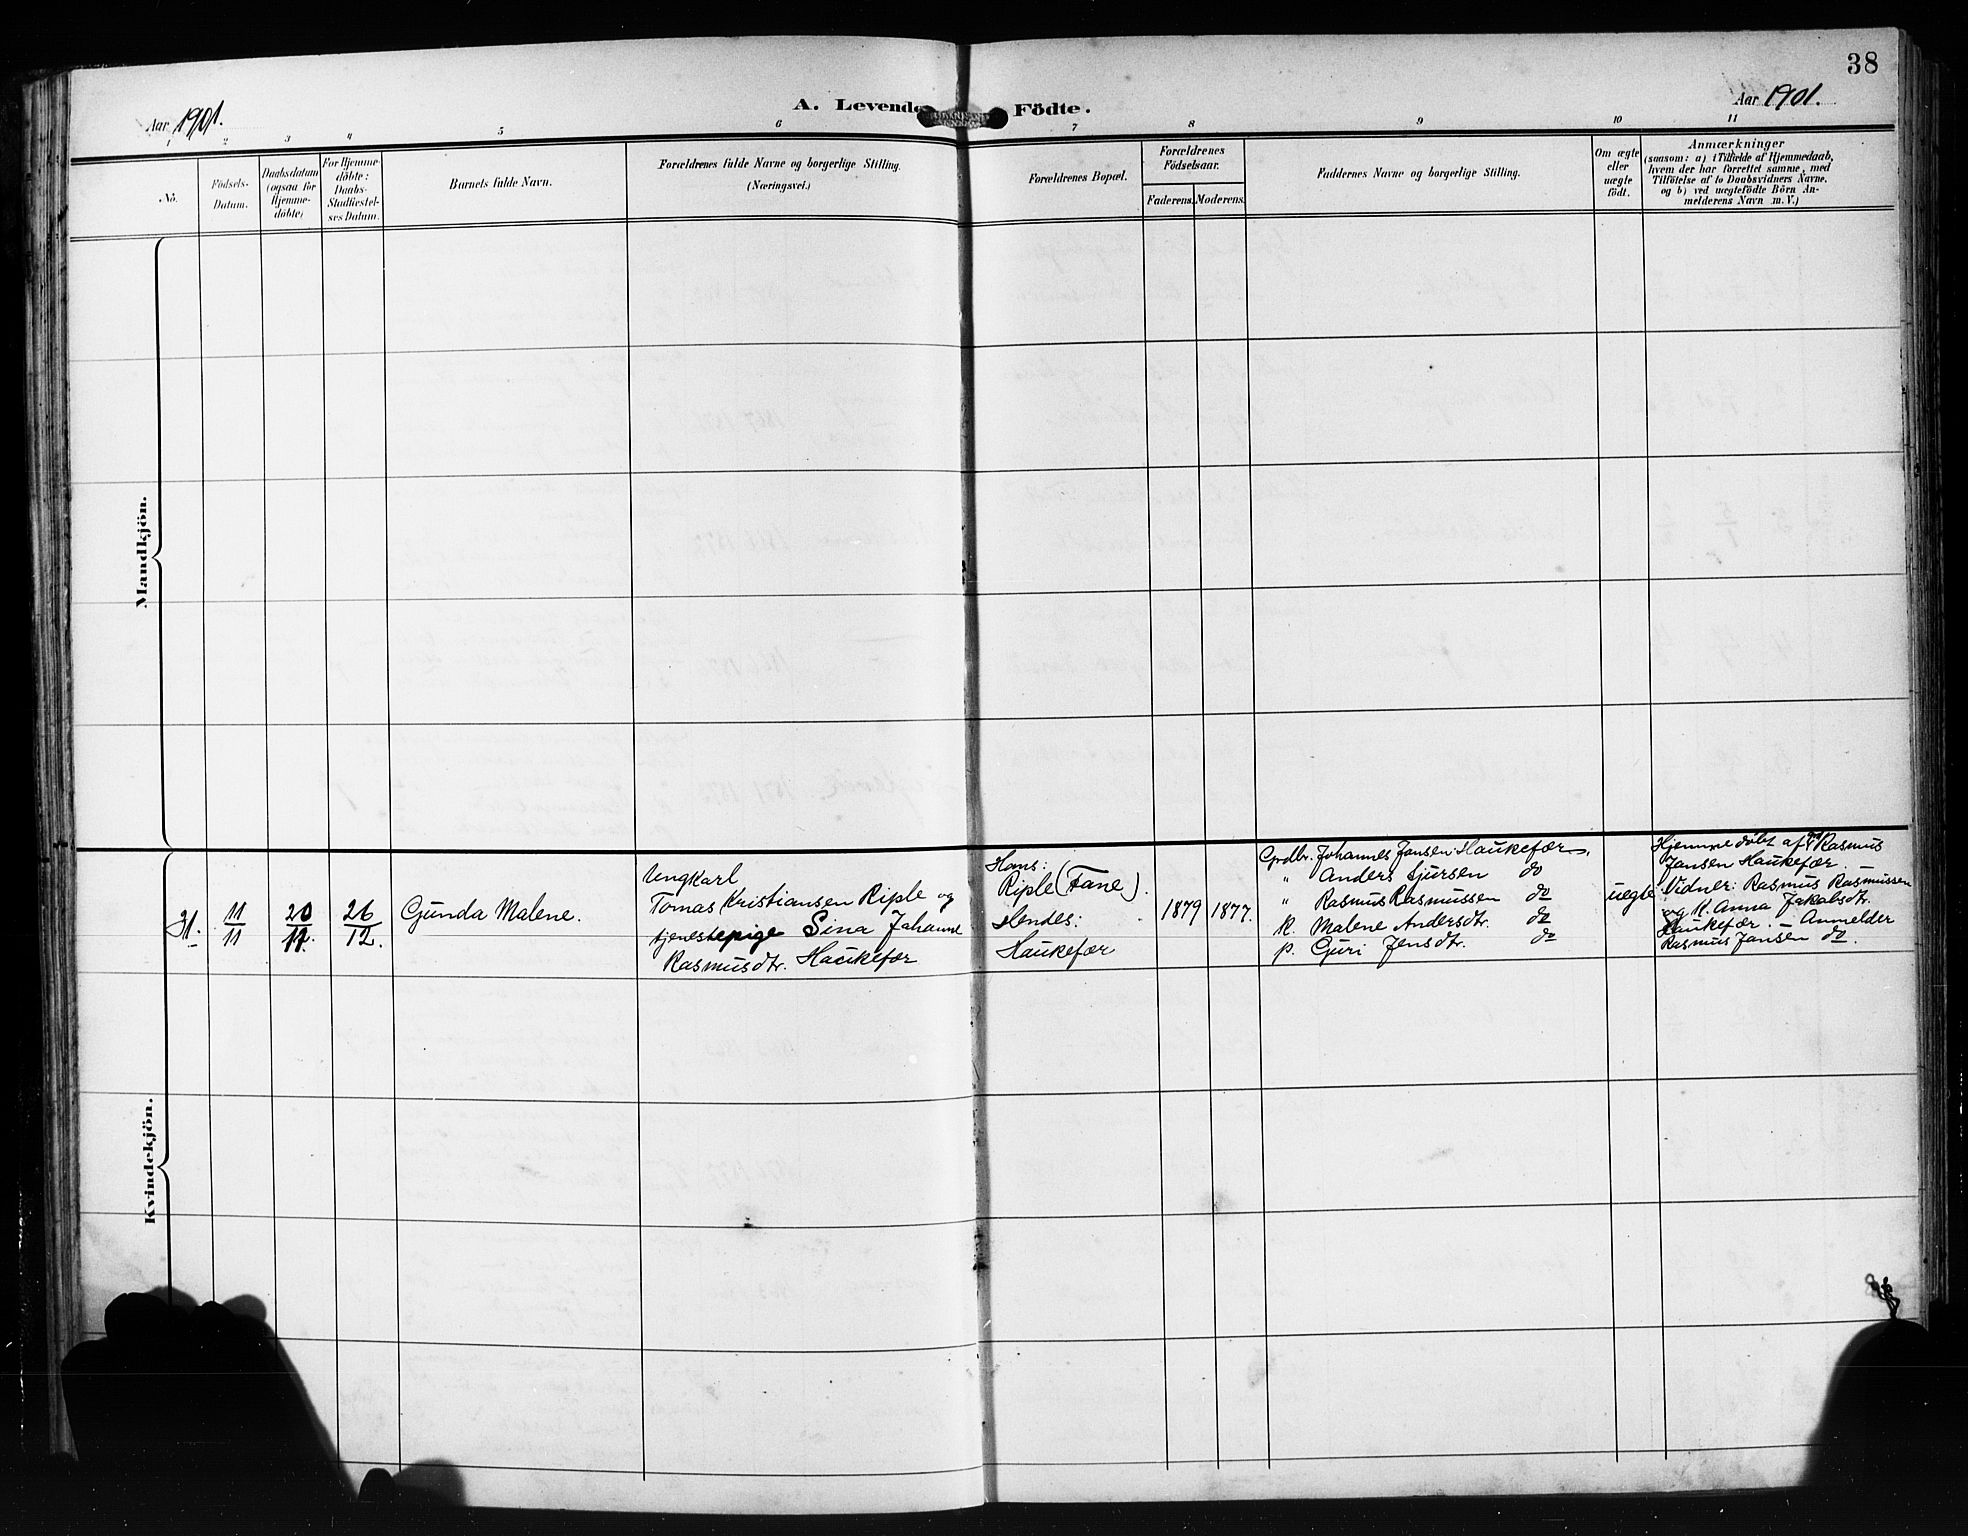 38
Aar 1901.
A. Levende Födte.
Aar 1901.
1 2 3 4 5 6 7 8 9 10 11
No.
Födsels-
Datum.
Daabsdatum
(ogsaa for
Hjemme-
döbte)
For Hjemme-
döbte:
Daabs-
Stadfæstel-
ses Datum.
Barnets fulde Navn.
Forældrenes fulde Navne og borgerlige Stilling.
(Næringsvei.)
Forældrenes Bopæl.
Forældrenes
Födselsaar.
Faderens. Moderens.
Faddernes Navne og borgerlige Stilling.
Om ægte
eller
uægte
födt.
Anmærkninger
(saasom: a) i Tilfælde af Hjemmedaab,
hvem der har forrettet samme, med
Tilföielse af to Daabsvidners Navne,
og b) ved uægtefödte Börn An-
melderens Navn m. V.)
Mandkjön.
Kvindekjön.
31.
11
11
20
11.
26
12.
Gunda Malene.
Ungkarl
Tomas Kristiansen Riple og
tjenestepige Sina Johanne
Rasmusdtr. Haukefær
Hans:
Riple (Fane).
Hendes:
Haukefær
1879
1877.
Grdbr. Johannes Jansen Haukefær.
" Anders Sjursen do
" Rasmus Rasmussen do
K. Malene Andersdtr. do
p. Guri Jensdtr. do
uegte
Hjemmedøbt af Rasmus
Jansen Haukefær.
Vidner: Rasmus Rasmussen
og K. Anna Jakobsdtr.
Haukefær. - Anmelder
Rasmus Jansen do.